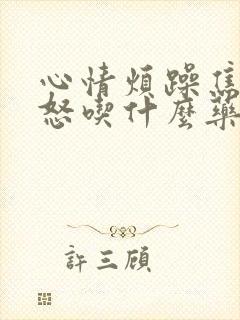 心情煩躁焦
怒喫什麼藥
許三顧